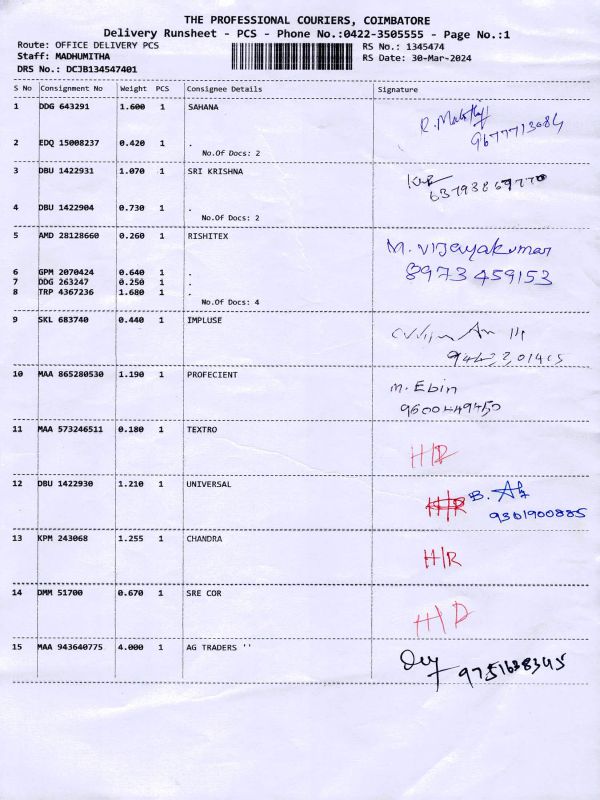 THE PROFESSIONAL COURIERS, COIMBATORE
Delivery Runsheet - PCS - Phone No.:0422-3505555 - Page No.:1
Route: OFFICE DELIVERY PCS RS No.: 1345474
Staff: MADHUMITHA RS Date: 30-Mar-2024
DRS No.: DCJB134547401
S No Consignment No Weight PCS Consignee Details Signature
1 DDG 643291 1.600 1 SAHANA
9677713084
2 EDQ 15008237 0.420 1 .
No.Of Docs: 2
3 DBU 1422931 1.070 1 SRI KRISHNA
4 DBU 1422904 0.730 1 .
No.Of Docs: 2
5 AMD 28128660 0.260 1 RISHITEX M. Vijayakumar
8973459153
6 GPM 2070424 0.640 1 .
7 DDG 263247 0.250 1 .
8 TRP 4367236 1.680 1 .
No.Of Docs: 4
9 SKL 683740 0.440 1 IMPLUSE
10 MAA 865280530 1.190 1 PROFECIENT M. Ebin
11 MAA 573246511 0.180 1 TEXTRO H/D
12 DBU 1422930 1.210 1 UNIVERSAL H/R B.
9361900885
13 KPM 243068 1.255 1 CHANDRA H/R
14 DMM 51700 0.670 1 SRE COR H/D
15 MAA 943640775 4.000 1 AG TRADERS '' 9751638345